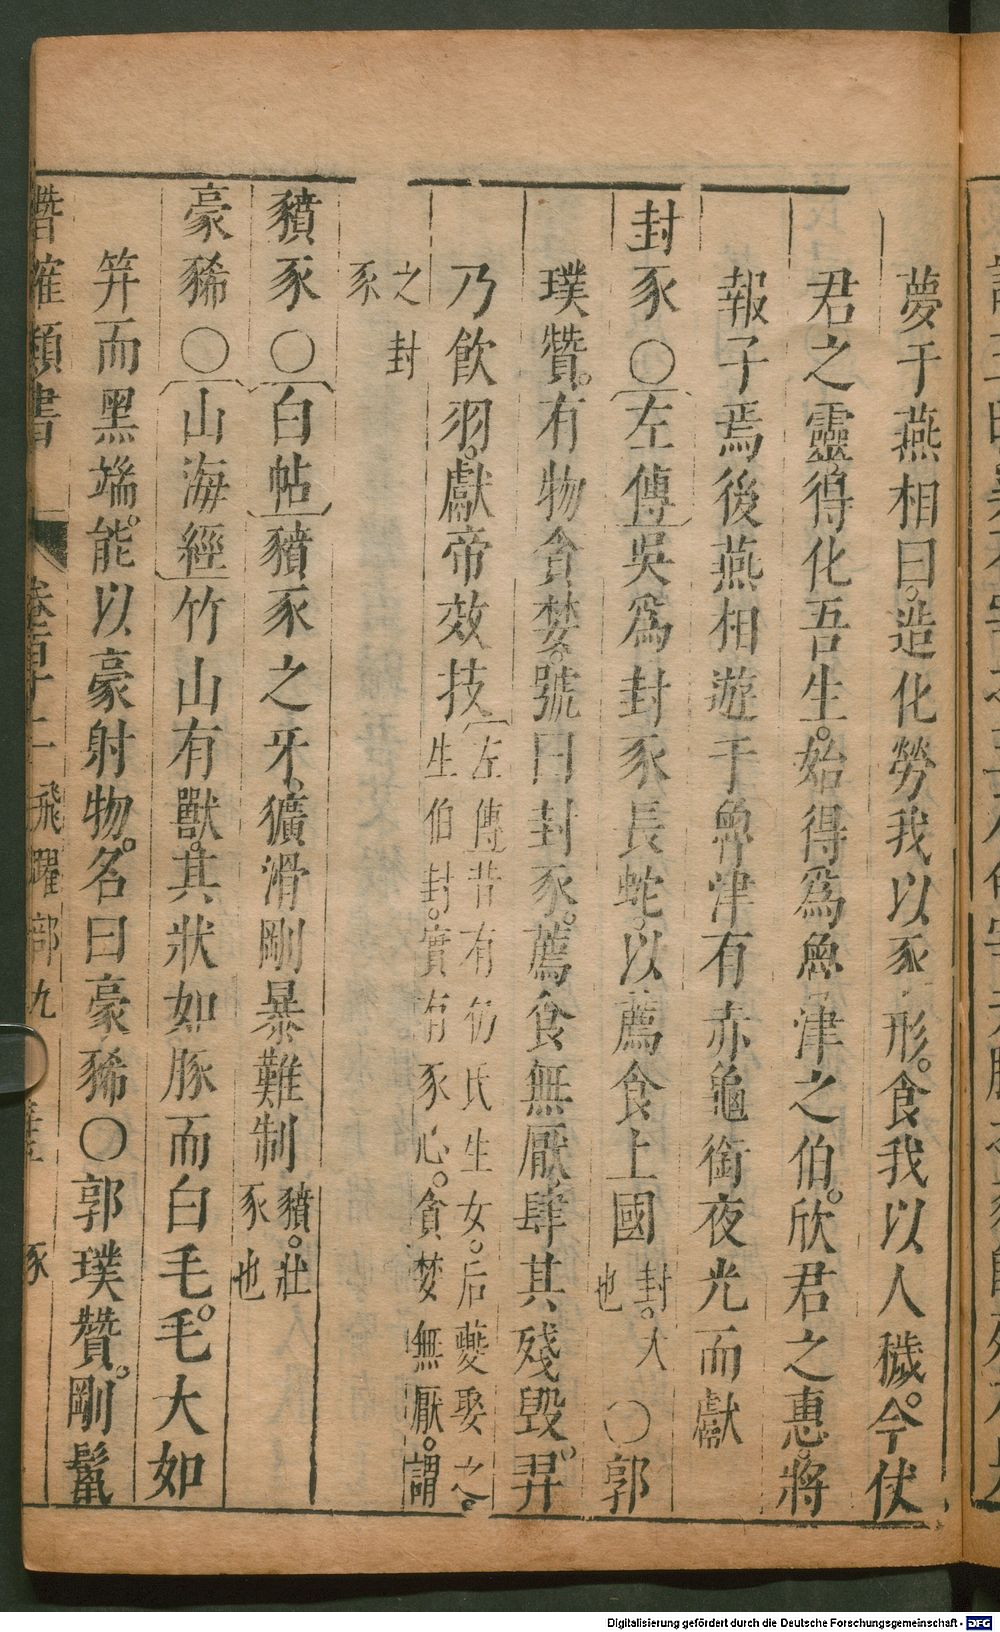 夢于燕相曰造化勞我以豕形食我以人穢今伏
君之靈得化吾生始得爲魚津之伯欣君之惠將
報子焉後燕相遊于魯津有赤龜銜夜光而獻
封豕○左傳吳爲封豕長蛇以薦食上國封大也○郭
璞贊有物貪婪號曰封豕薦食無厭肆其殘毀羿
乃飲羽獻帝效技左傳昔有仍氏生女后夔娶之
生伯封實有豕心貪婪無厭謂
之封豕
豶豕○白帖豶豕之牙獷滑剛暴難制豶壯豕也
豪豨○山海經竹山有獸其狀如豚而白毛毛大如
笄而黑端能以豪射物名曰豪豨○郭璞贊剛鬣
潛確類書 飛躍部九 豕
Digitalisierung gefördert durch die Deutsche Forschungsgemeinschaft - DFG